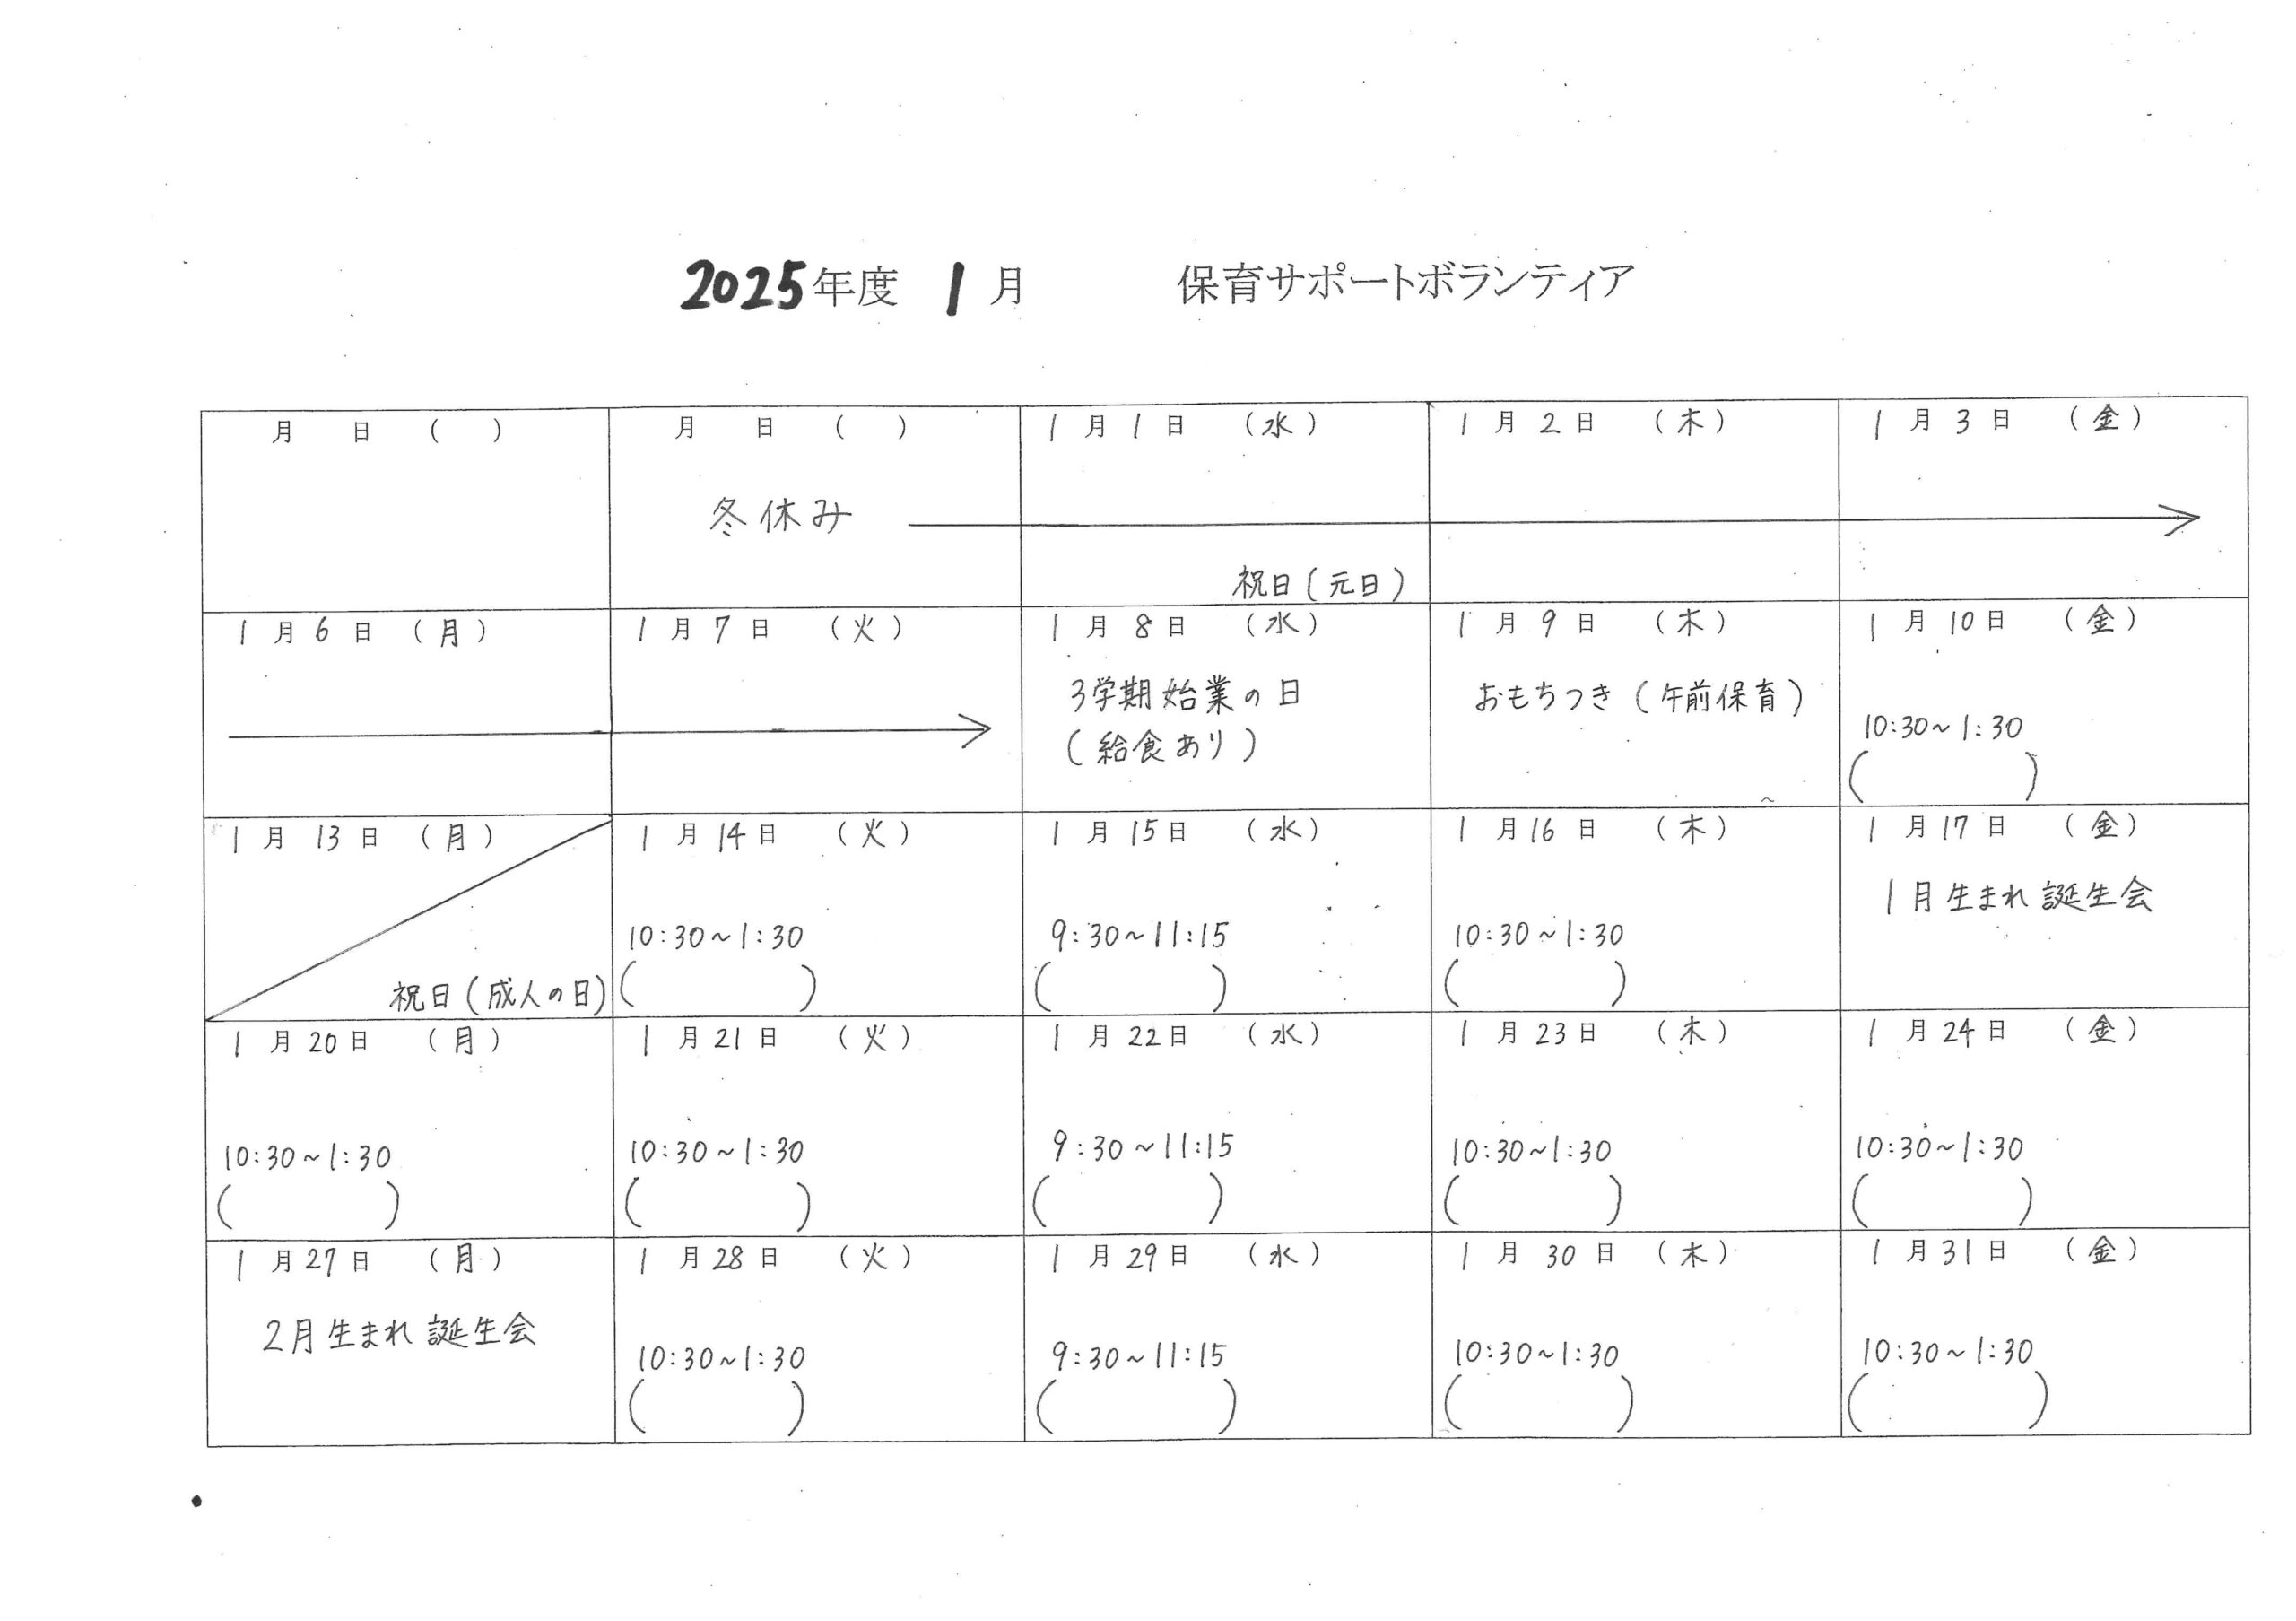 2025年度 1月 保育サポートボランティア
月 日 ( )
月 日 ( )
冬休み
1月1日 (水)
祝日(元日)
1月2日 (木)
1月3日 (金)
1月6日 (月)
1月7日 (火)
1月8日 (水)
3学期始業の日
(給食あり)
1月9日 (木)
おもちつき(午前保育)
1月10日 (金)
10:30~1:30
( )
1月13日 (月)
祝日(成人の日)
1月14日 (火)
10:30~1:30
( )
1月15日 (水)
9:30~11:15
( )
1月16日 (木)
10:30~1:30
( )
1月17日 (金)
1月生まれ誕生会
1月20日 (月)
10:30~1:30
( )
1月21日 (火)
10:30~1:30
( )
1月22日 (水)
9:30~11:15
( )
1月23日 (木)
10:30~1:30
( )
1月24日 (金)
10:30~1:30
( )
1月27日 (月)
2月生まれ誕生会
1月28日 (火)
10:30~1:30
( )
1月29日 (水)
9:30~11:15
( )
1月30日 (木)
10:30~1:30
( )
1月31日 (金)
10:30~1:30
( )